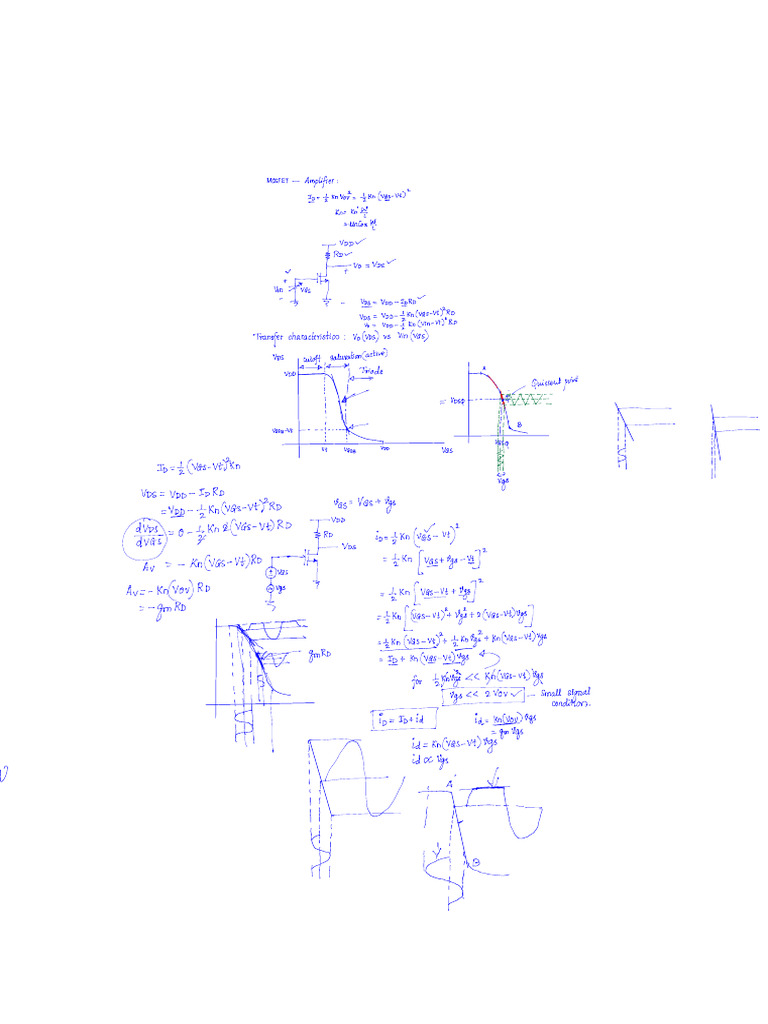 MOSFET — Amplifier:
ID = 1/2 Kn Vov² = 1/2 Kn (VGS-Vt)²
Kn = Kn' W/L
= μnCox W/L
VDD ✓
RD ✓
+ VO = VDS ✓
✓
+
Vin
VGS
-
VDS = VDD - IDRD ✓
VDS = VDD - 1/2 Kn(VGS-Vt)² RD
VO = VDD - 1/2 Kn (Vin-Vt)² RD
Transfer characteristics: VO(VDS) vs Vin(VGS)
VDS
cutoff
saturation (active)
Triode
VDD
VGSB-Vt
Vt
VGSB
VDD
VGS
A
Quiscent point
= VDSQ
B
VGSQ
Vgs
ID = 1/2 (VGS-Vt)² Kn
VDS = VDD - IDRD
= VDD - 1/2 Kn (VGS-Vt)² RD
dVDS/dVGS = 0 - 1/2 Kn 2 (VGS-Vt) RD
AV = - Kn (VGS-Vt) RD
AV = - Kn (VOV) RD
= - gm RD
vGS = VGS + vgs
VDD
RD
VDS
VGS
vgs
iD = 1/2 Kn (VGS - Vt)²
= 1/2 Kn [VGS + vgs - Vt]²
= 1/2 Kn [VGS - Vt + vgs]²
= 1/2 Kn [(VGS-Vt)² + vgs² + 2(VGS-Vt)vgs]
= 1/2 Kn (VGS-Vt)² + 1/2 Kn vgs² + Kn (VGS-Vt) vgs
= ID + Kn (VGS-Vt) vgs
for 1/2 Kn vgs² << Kn (VGS-Vt) vgs
vgs << 2 VOV ✓ — small signal
condition.
gm RD
iD = ID + id
id = Kn (VOV) vgs
= gm vgs
id = Kn (VGS-Vt) vgs
id ∝ vgs
A
B